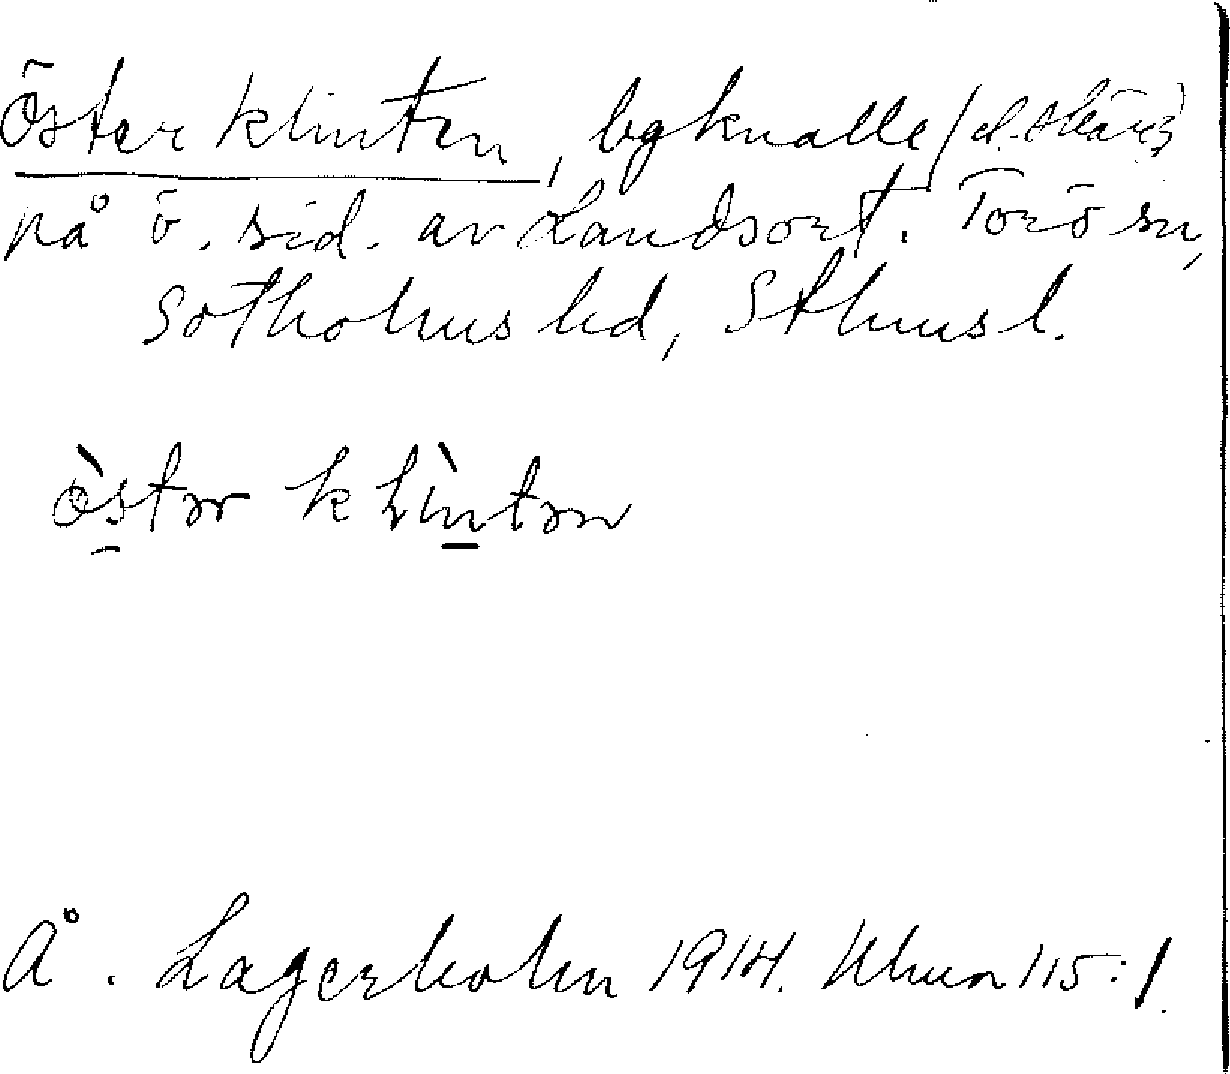 Öster klinten, bgknalle
på ö. sid. av Landsort. Torö sn,
Sotholms hd, Sthms l.
òstər klìntən
Å. Lagerholm 1914. Uhm 115:1